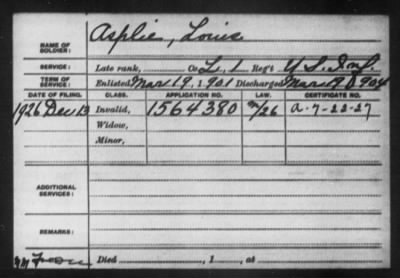 NAME OF SOLDIER: Asplie, Louis
SERVICE: Late rank, Co L, 1 Reg't U S Inf.
TERM OF SERVICE: Enlisted Mar 19, 1901 Discharged Mar 18, 1904
DATE OF FILING. CLASS. APPLICATION NO. LAW. CERTIFICATE NO.
1926 Dec 13 Invalid, 1564380 a-7-22-27
Widow,
Minor,
ADDITIONAL SERVICES:
REMARKS:
Died , 1 , at